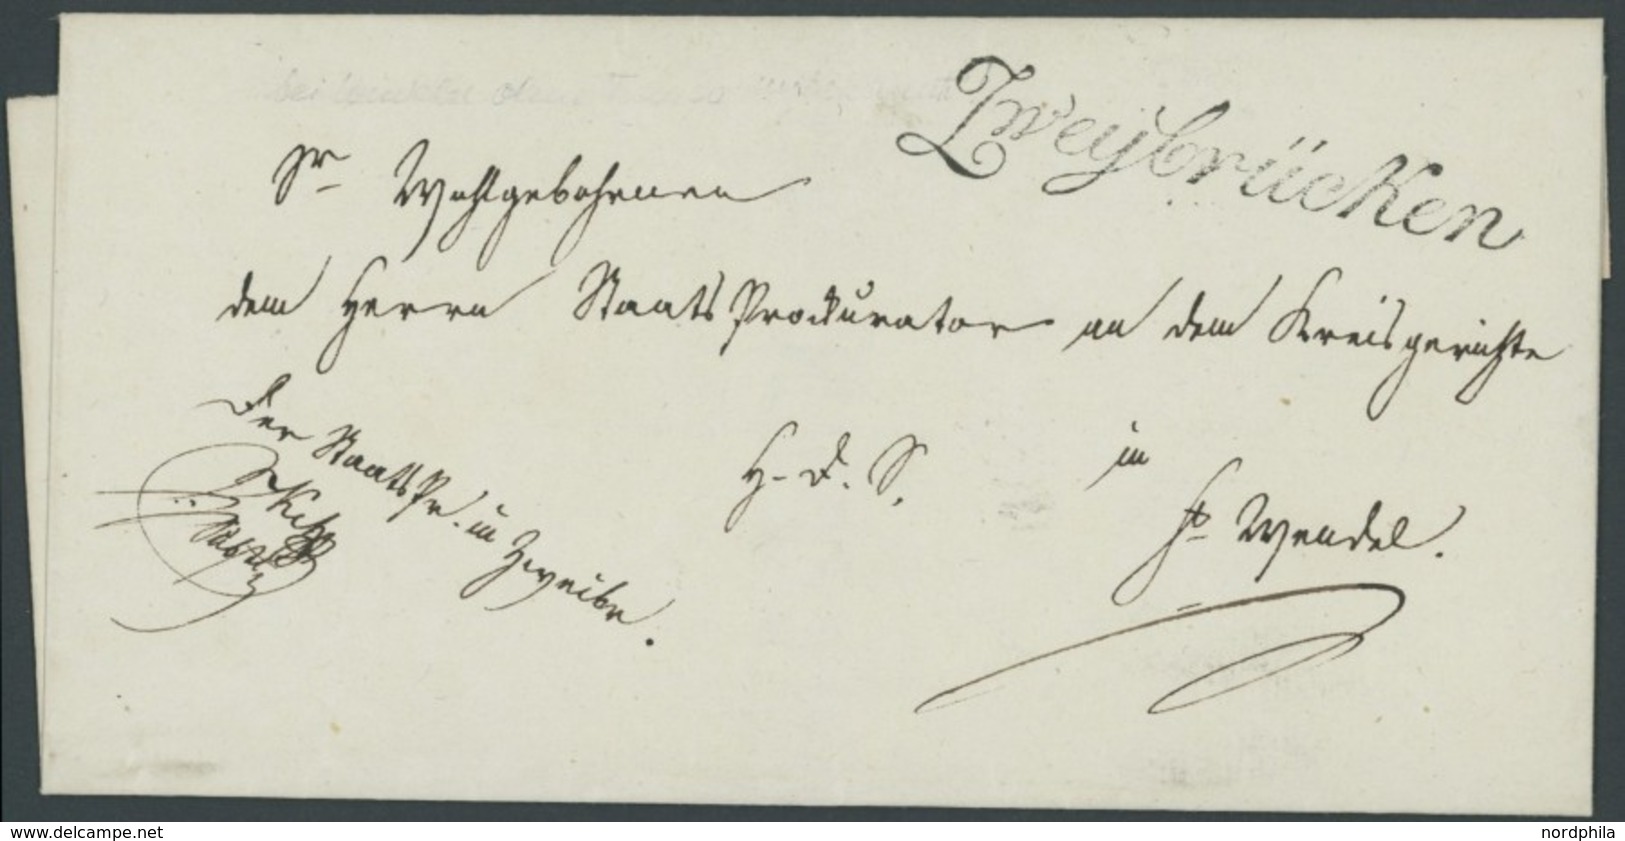 Zweybrücken
Sr Wohlgebohrnen
dem Herrn Staats Prockurator an dem Kreisgerichte
H. D. S. in
St Wendel.
Der Staats Pr. in Zweibr.
www.delcampe.net
nordphila